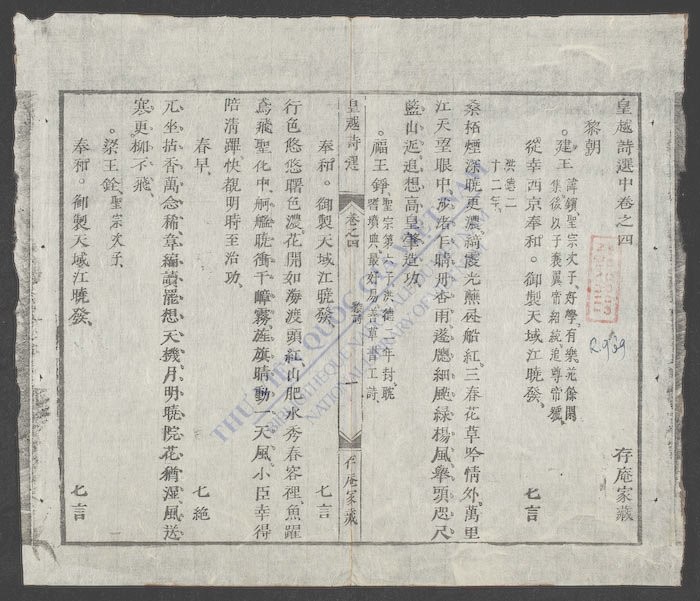 皇越詩選中卷之四
存庵家藏
黎朝
建王
諱鑌聖宗次子好學有樂苑餘閒
集後以子襄翼帝紹統追尊帝號
從幸西京奉和御製天域江曉發
洪德二
十二年
七言
桑拓煙深曉更濃綺霞光蘸
船紅三春花草吟情外萬里
江天望眼中
杏雨
細
綠楊風舉頭咫尺
藍山近追想高皇肇造功
福王錚
聖宗第六子洪德二年封聰
習墳典最好易善草書工詩
奉和御製天域江曉發
七言
行色悠悠曙色濃花開如海渡頭紅山肥水秀春容裡魚躍
鳶飛聖化中舸艦曉衝千嶂霧旌旗晴動一天風小臣幸得
陪清蹕快覩明時至治功
春早
七絕
兀坐拈香萬念稀章編讀罷想天機月明曉院花猶濕風送
寒更柳不飛
梁王銓
聖宗次子
奉和御製天域江曉發
七言
皇越詩選
卷之四
黎詩
一
存庵家藏
R.929
THƯ VIỆN QUỐC GIA VIỆT NAM
BIBLIOTHEQUE NATIONALE DU VIETNAM
NATIONAL LIBRARY OF VIETNAM